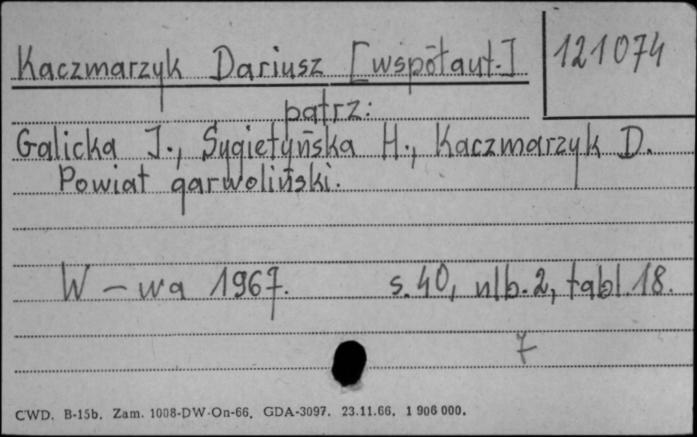 Kaczmarzyk Dariusz [współaut.]
121074
patrz:
Galicka I., Sygietyńska H., Kaczmarzyk D.
Powiat garwoliński.
W-wa 1967. s. 40, nlb. 2, tabl. 18.
7
CWD. B-15b. Zam. 1008-DW-On-66. GDA-3097. 23.11.66. 1 906 000.